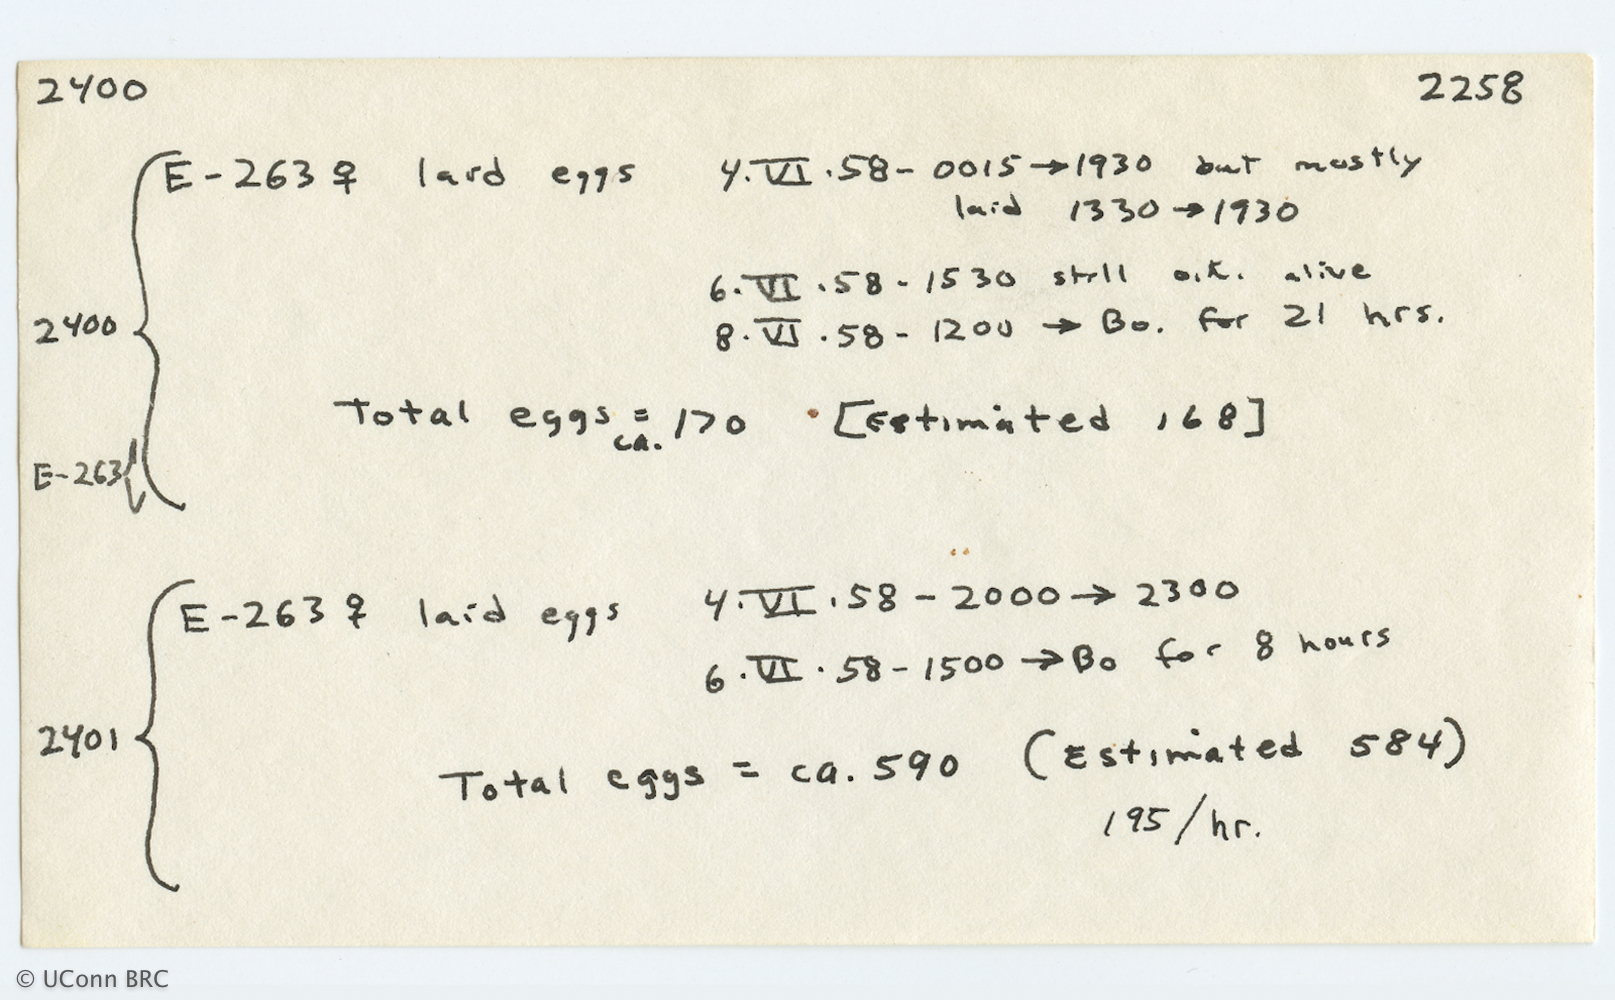 2400 2258
E-263♀ laid eggs 4.VI.58- 0015→1930 but mostly
laid 1330→1930
6.VI.58-1530 still o.k. alive
2400 8.VI.58-1200 → Bo. for 21 hrs.
Total eggs = ca. 170 [Estimated 168]
E-263
E-263♀ laid eggs 4.VI.58-2000→2300
6.VI.58-1500→Bo for 8 hours
2401 Total eggs = ca. 590 (Estimated 584)
195/hr.
© UConn BRC